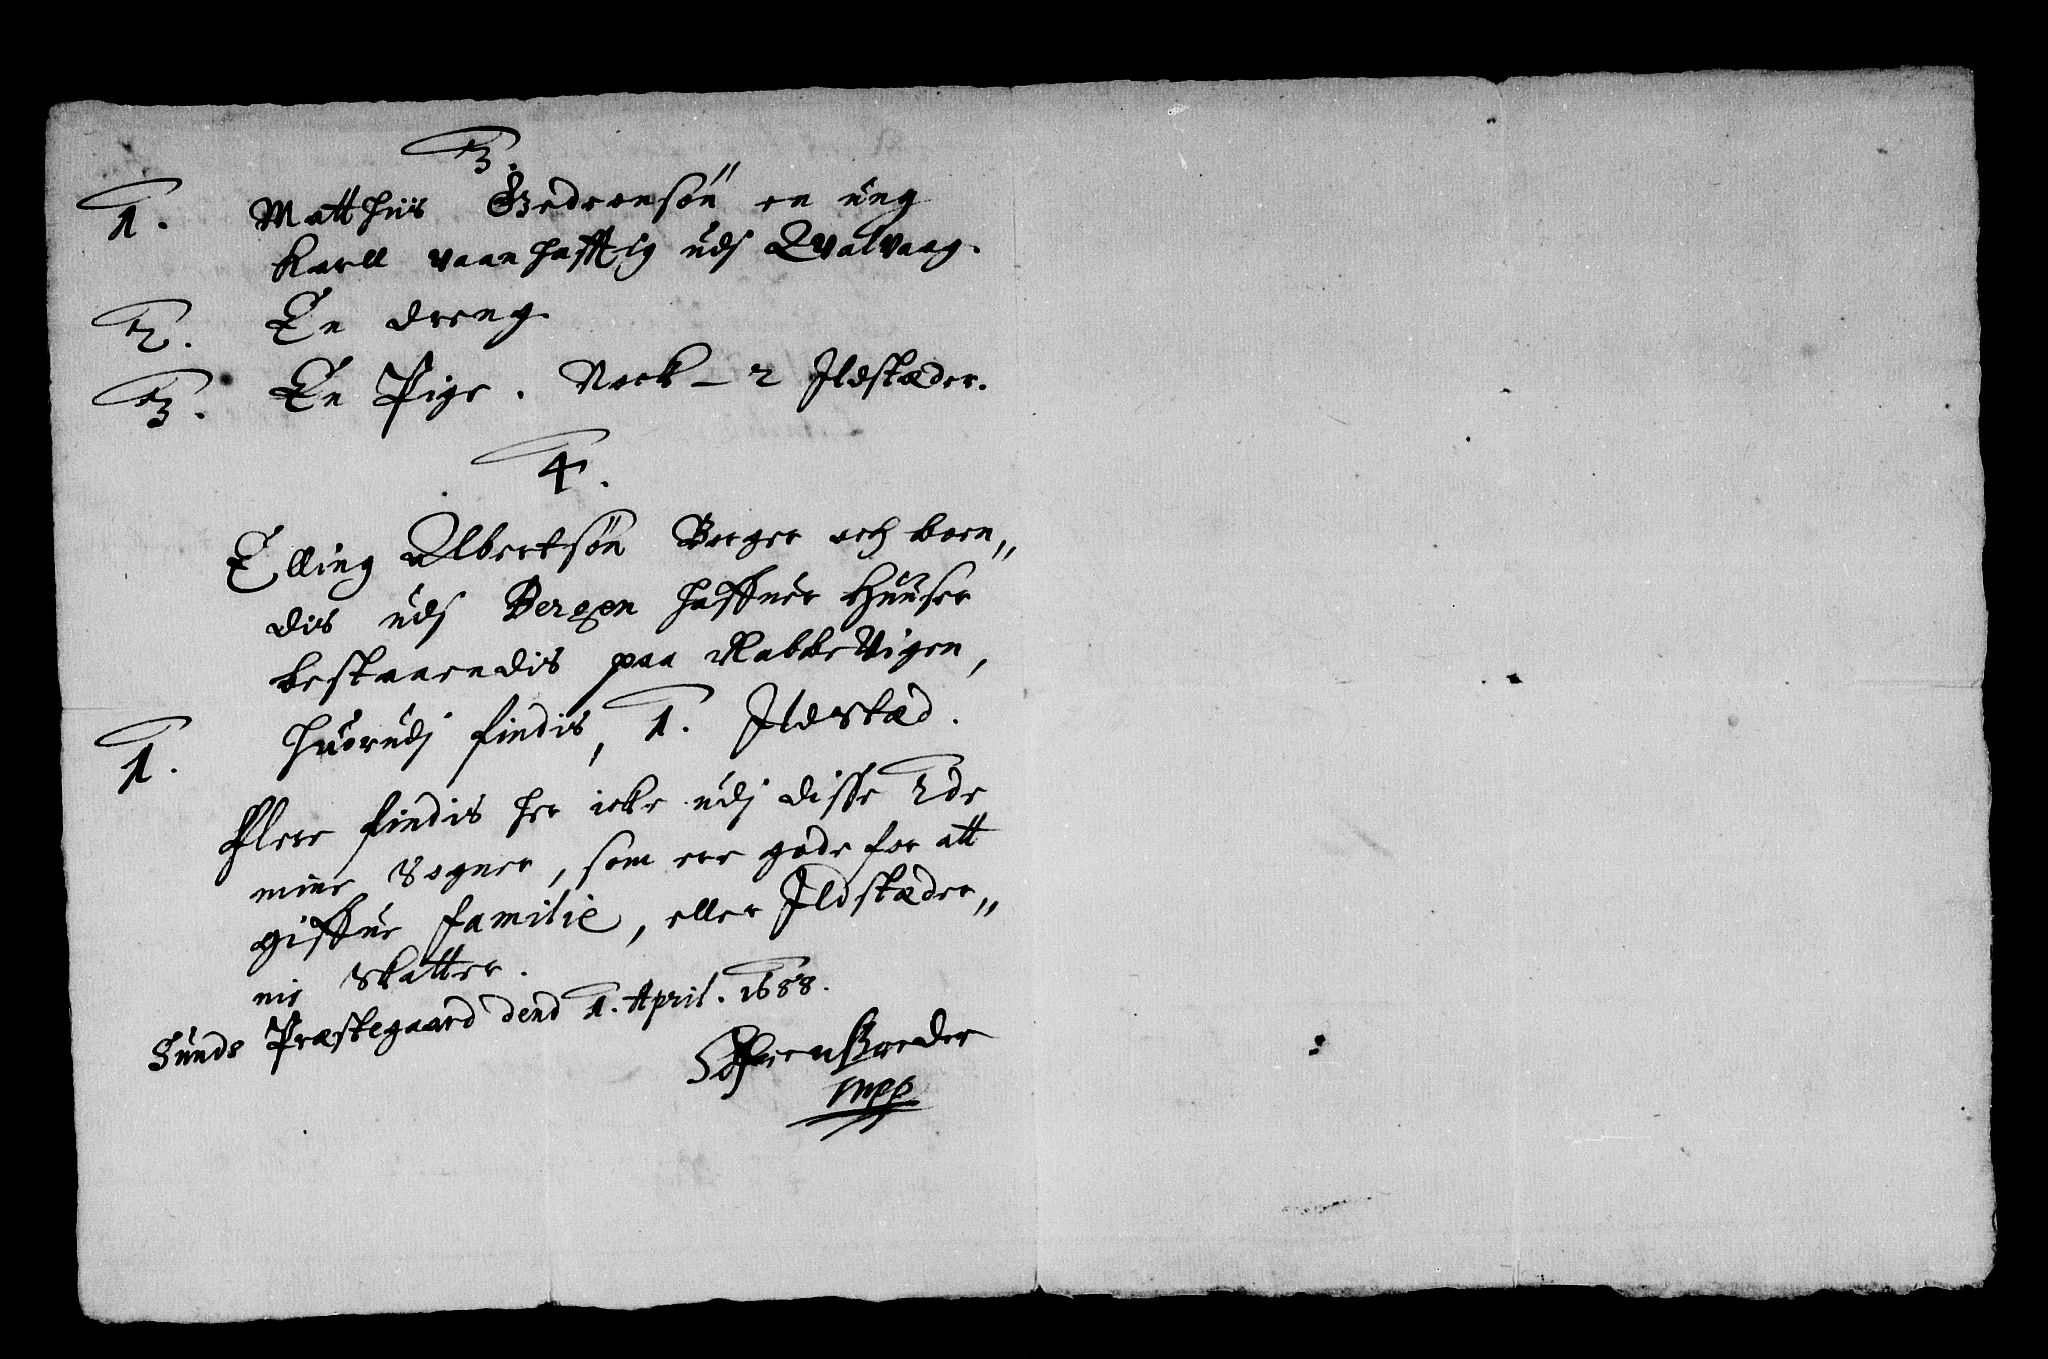 3.
1. Matthiis Gedeonsøn en ung
Karll vaanhafftig udj Qvalvaag.
2. En dreng
3. En Pige. Nock – 2 Ildstæder.
4.
Elling Albertsøn Borger och boen„
dis udj Bergen haffuer Huuser
bestaaendis paa Rabbevigen,
1. huorudj findis, 1. Ildstæd.
Flere findis her icke udj disse 2de
mine Sogner, som ere gode for att
giffue familie, eller Ildstæder„
nis Skatter.
Sunds Præstegaard dend 1. April. 1688.
mpp